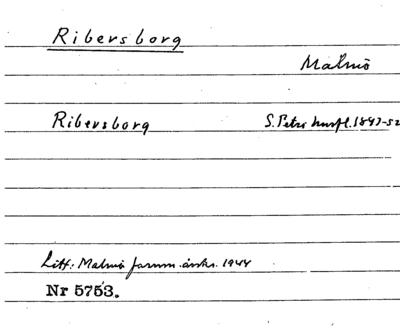 Ribersborg
Malmö
Ribersborg S. Petri husfl. 1847-52
Litt: Malmö fornm. årskr. 1944
Nr 5753.